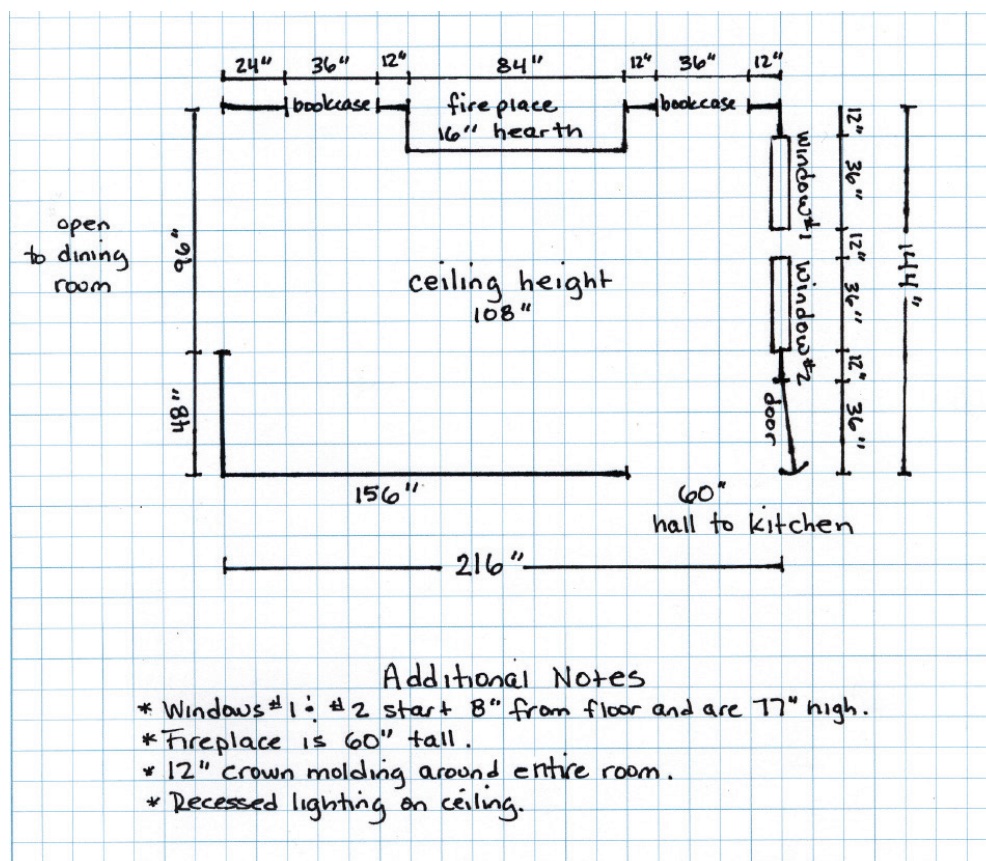 24" 36" 12" 84" 12" 36" 12"
bookcase
fireplace
16" hearth
bookcase
12"
window #1
36"
open
to dining
room
96"
12"
144"
ceiling height
108"
window #2
36"
12"
48"
door
36"
156"
60"
hall to kitchen
216"
Additional Notes
* Windows #1 & #2 start 8" from floor and are 77" high.
* Fireplace is 60" tall.
* 12" crown molding around entire room.
* Recessed lighting on ceiling.